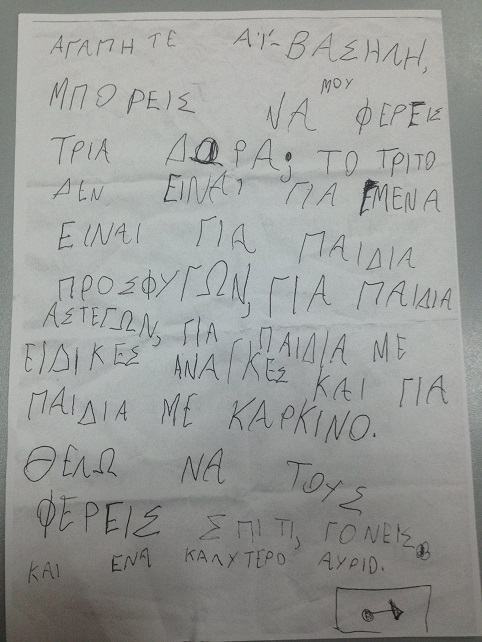 ΑΓΑΠΗΤΕ ΑΪ-ΒΑΣΗΛΗ,
ΜΠΟΡΕΙΣ ΝΑ ΜΟΥ ΦΕΡΕΙΣ
ΤΡΙΑ ΔΩΡΑ; ΤΟ ΤΡΙΤΟ
ΔΕΝ ΕΙΝΑΙ ΓΙΑ ΕΜΕΝΑ
ΕΙΝΑΙ ΓΙΑ ΠΑΙΔΙΑ
ΠΡΟΣΦΥΓΩΝ, ΓΙΑ ΠΑΙΔΙΑ
ΑΣΤΕΓΩΝ, ΓΙΑ ΠΑΙΔΙΑ ΜΕ
ΕΙΔΙΚΕΣ ΑΝΑΓΚΕΣ ΚΑΙ ΓΙΑ
ΠΑΙΔΙΑ ΜΕ ΚΑΡΚΙΝΟ.
ΘΕΛΩ ΝΑ ΤΟΥΣ
ΦΕΡΕΙΣ ΣΠΙΤΙ, ΓΟΝΕΙΣ
ΚΑΙ ΕΝΑ ΚΑΛΥΤΕΡΟ ΑΥΡΙΟ.